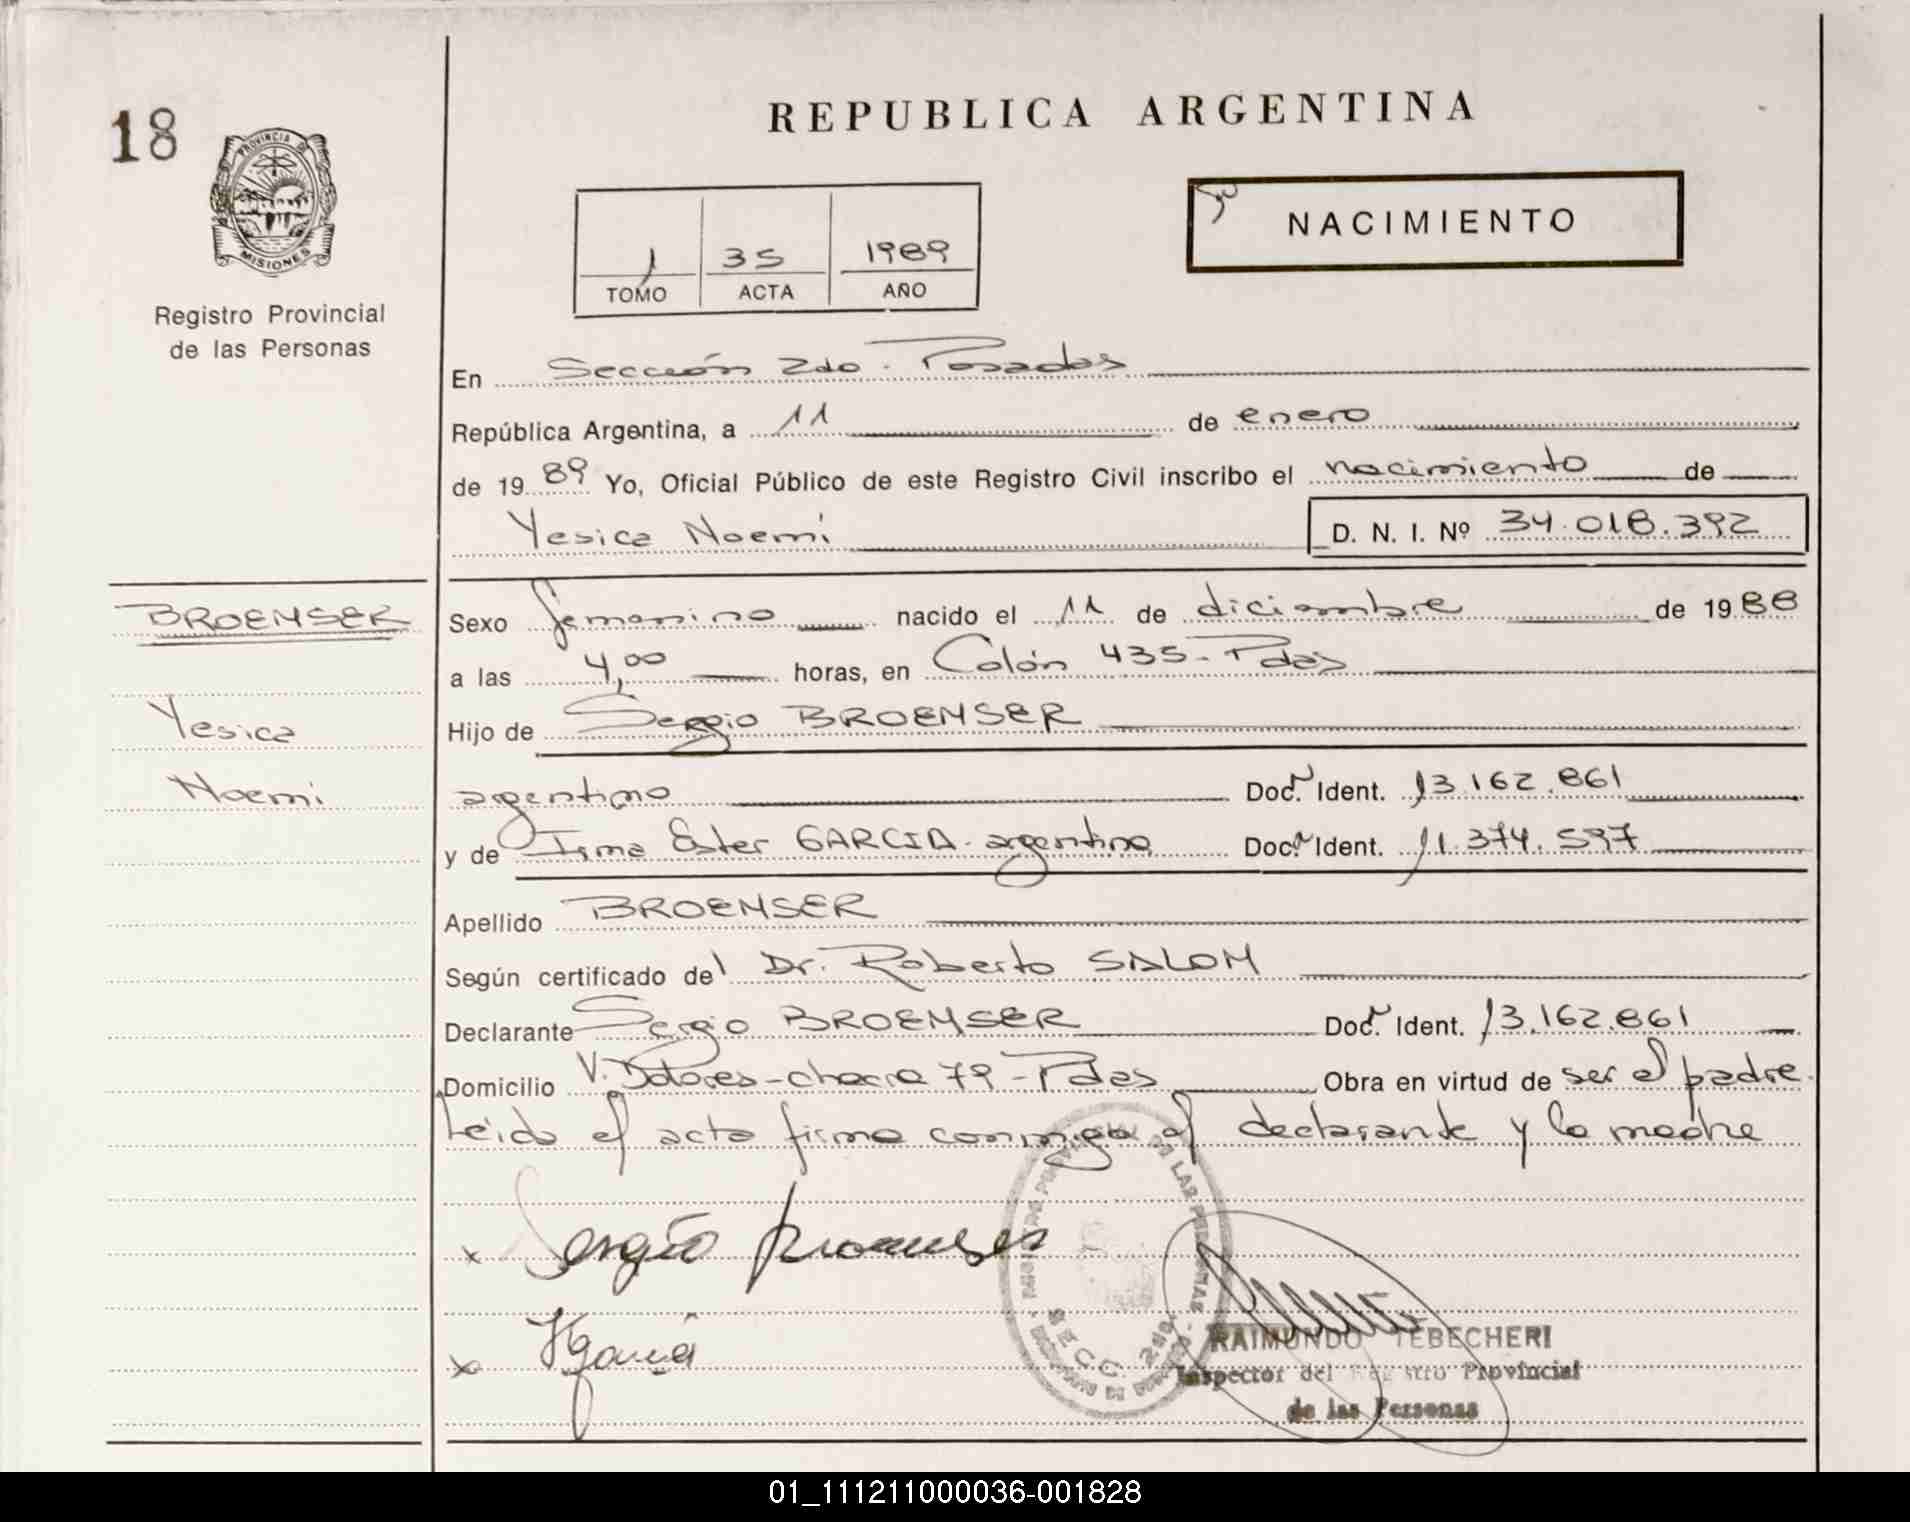 18
PROVINCIA DE
MISIONES
Registro Provincial
de las Personas
REPUBLICA ARGENTINA
1 35 1989
TOMO ACTA AÑO
NACIMIENTO
En Sección 2da. Posadas
República Argentina, a 11 de enero
de 1989 Yo, Oficial Público de este Registro Civil inscribo el nacimiento de
Yesica Noemí D. N. I. Nº 34.018.392
BROEMSER
Yesica
Noemi
Sexo femenino nacido el 11 de diciembre de 1988
a las 4,00 horas, en Colón 435-Pdas
Hijo de Sergio BROEMSER
argentino Doc. Ident. 13.162.861
y de Irma Ester GARCIA-argentina Doc. Ident. 11.374.597
Apellido BROEMSER
Según certificado del Dr. Roberto SALOM
Declarante Sergio BROEMSER Doc. Ident. 13.162.861
Domicilio V. Dolores-chacra 79-Pdas Obra en virtud de ser el padre.
Leída el acta firma conmigo el declarante y la madre
x Sergio Broemser
x IGarcía
DE LAS PERSONAS
SECC. 2da.
RAIMUNDO TEBECHERI
Inspector del Registro Provincial
de las Personas
01_111211000036-001828